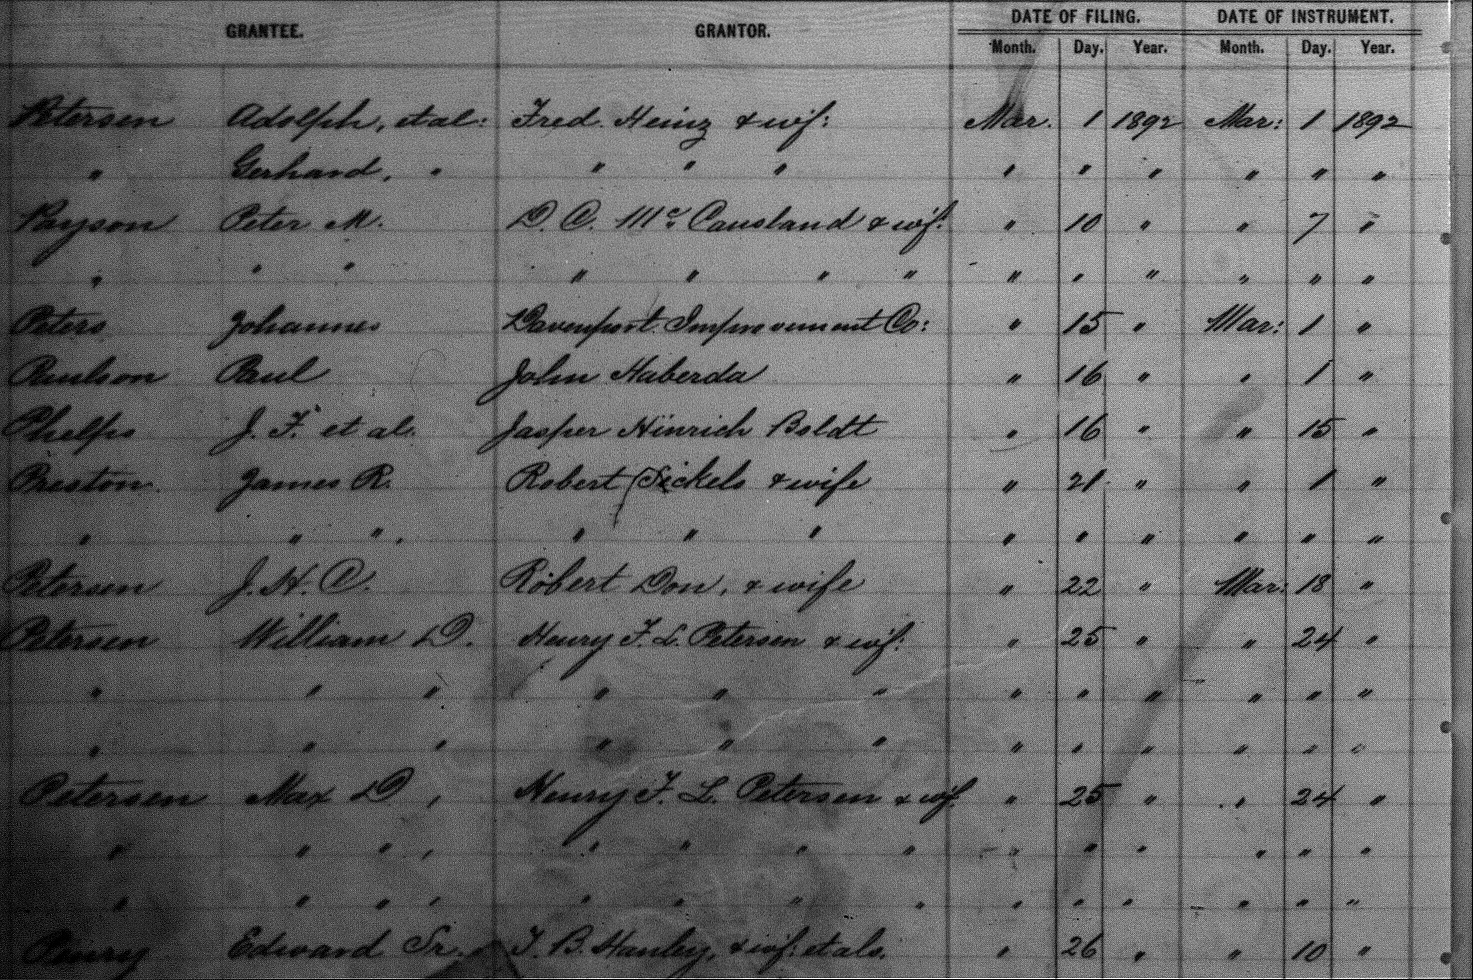 GRANTEE. GRANTOR. DATE OF FILING. DATE OF INSTRUMENT.
Month. Day. Year. Month. Day. Year.
Petersen Adolph, et al: Fred. Heinz & wif: Mar. 1 1892 Mar: 1 1892
" Gerhard, " " " " " " " " " "
Payson Peter M. D. C. McCausland & wif: " 10 " " 7 "
" " " " " " " " " " " " "
Peters Johannes Davenport Improvement Co: " 15 " Mar: 1 "
Paulson Paul John Haberda " 16 " " 1 "
Phelps J. F. et al. Jasper Hinrich Boldt " 16 " " 15 "
Preston James R. Robert Sickels & wife " 21 " " 1 "
" " " " " " " " " " " "
Petersen J. H. C. Robert Don, & wife " 22 " Mar: 18 "
Petersen William D. Henry F. L. Petersen & wif: " 25 " " 24 "
" " " " " " " " " " " "
" " " " " " " " " " " "
Petersen Max D, Henry F. L. Petersen & wif. " 25 " " 24 "
" " " " " " " " " " " " "
" " " " " " " " " " " " "
Penry Edward Sr. T. B. Hanley, & wif: et als. " 26 " " 10 "